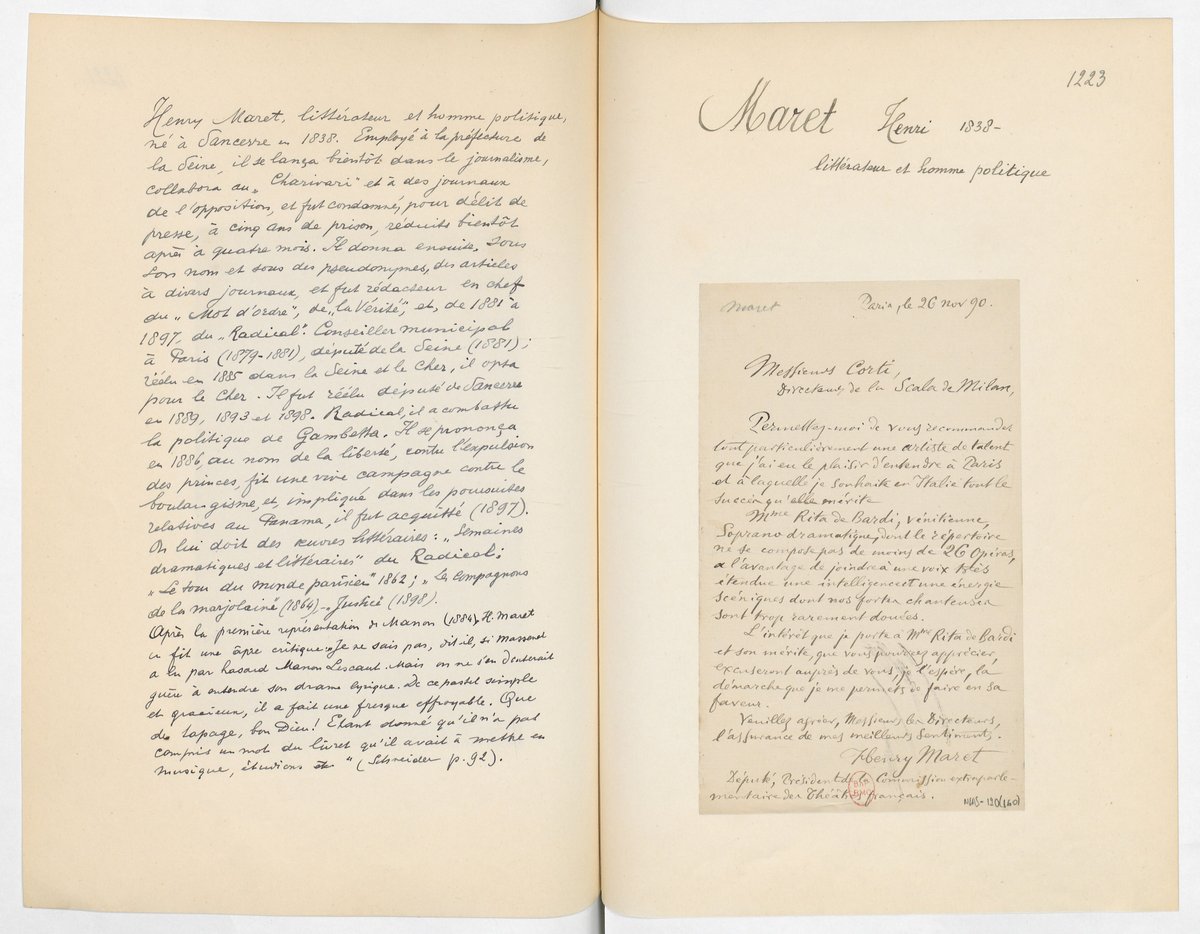 Henry Maret, littérateur et homme politique,
né à Sancerre en 1838. Employé à la préfecture de
la Seine, il se lança bientôt dans le journalisme,
collabora au „Charivari" et à des journaux
de l'opposition, et fut condamné, pour délit de
presse, à cinq ans de prison, réduits bientôt
après à quatre mois. Il donna ensuite, sous
son nom et sous des pseudonymes, des articles
à divers journaux, et fut rédacteur en chef
du „Mot d'ordre", de „la Vérité", et, de 1881 à
1897, du „Radical". Conseiller municipal
à Paris (1879-1881), député de la Seine (1881);
réélu en 1885 dans la Seine et le Cher, il opta
pour le Cher. Il fut réélu député de Sancerre
en 1889, 1893 et 1898. Radical, il a combattu
la politique de Gambetta. Il se prononça
en 1886, au nom de la liberté, contre l'expulsion
des princes, fit une vive campagne contre le
boulangisme, et, impliqué dans les poursuites
relatives au Panama, il fut acquitté (1897).
On lui doit des œuvres littéraires: „Semaines
dramatiques et littéraires" du Radical;
„Le tour du monde parisien" 1862; „Les Compagnons
de la marjolaine" (1864), „Justice" (1898).
Après la première représentation de Manon (1884) H. Maret
en fit une âpre critique: „Je ne sais pas, dit-il, si Massenet
a lu par hasard Manon Lescaut. Mais on ne s'en douterait
guère à entendre son drame lyrique. De ce pastel simple
et gracieux, il a fait une fresque effroyable. Que
de tapage, bon Dieu! Etant donné qu'il n'a pas
compris un mot du livret qu'il avait à mettre en
musique, étudions etc" (Schneider p. 92).
1223
Maret Henri 1838-
littérateur et homme politique
Maret
Paris, le 26 nov 90.
Messieurs Corti,
Directeurs de la Scala de Milan,
Permettez-moi de vous recommander
tout particulièrement une artiste de talent
que j'ai eu le plaisir d'entendre à Paris
et à laquelle je souhaite en Italie tout le
succès qu'elle mérite
Mme Rita de Bardi, vénitienne,
Soprano dramatique, dont le répertoire
ne se compose pas de moins de 26 Opéras,
a l'avantage de joindre à une voix très
étendue une intelligence et une énergie
scéniques dont nos fortes chanteuses
sont trop rarement douées.
L'intérêt que je porte à Mme Rita de Bardi
et son mérite, que vous pourrez apprécier,
excuseront auprès de vous, je l'espère, la
démarche que je me permets de faire en sa
faveur.
Veuillez agréer, Messieurs les Directeurs,
l'assurance de mes meilleurs sentiments.
Henry Maret
Député, Président de la Commission extraparle-
mentaire des Théâtres français.
NLAS-120(160)